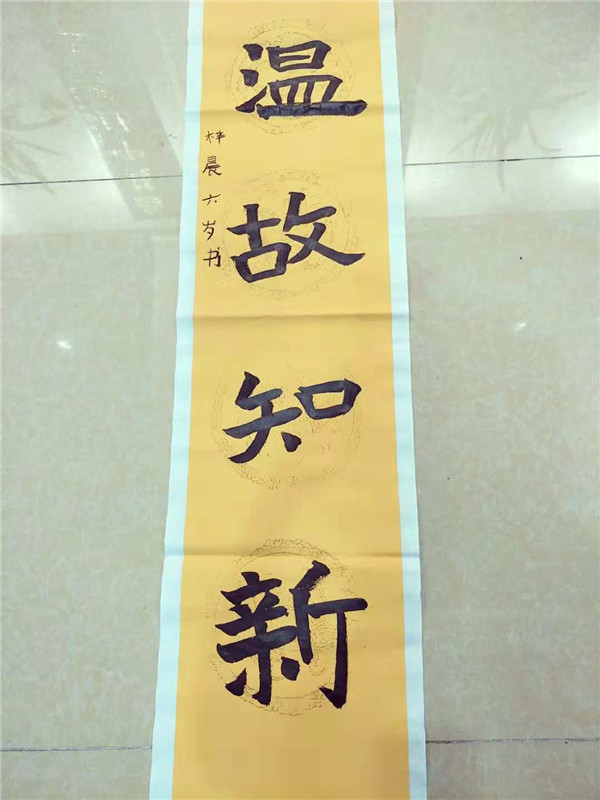 温故知新
梓晨六岁书